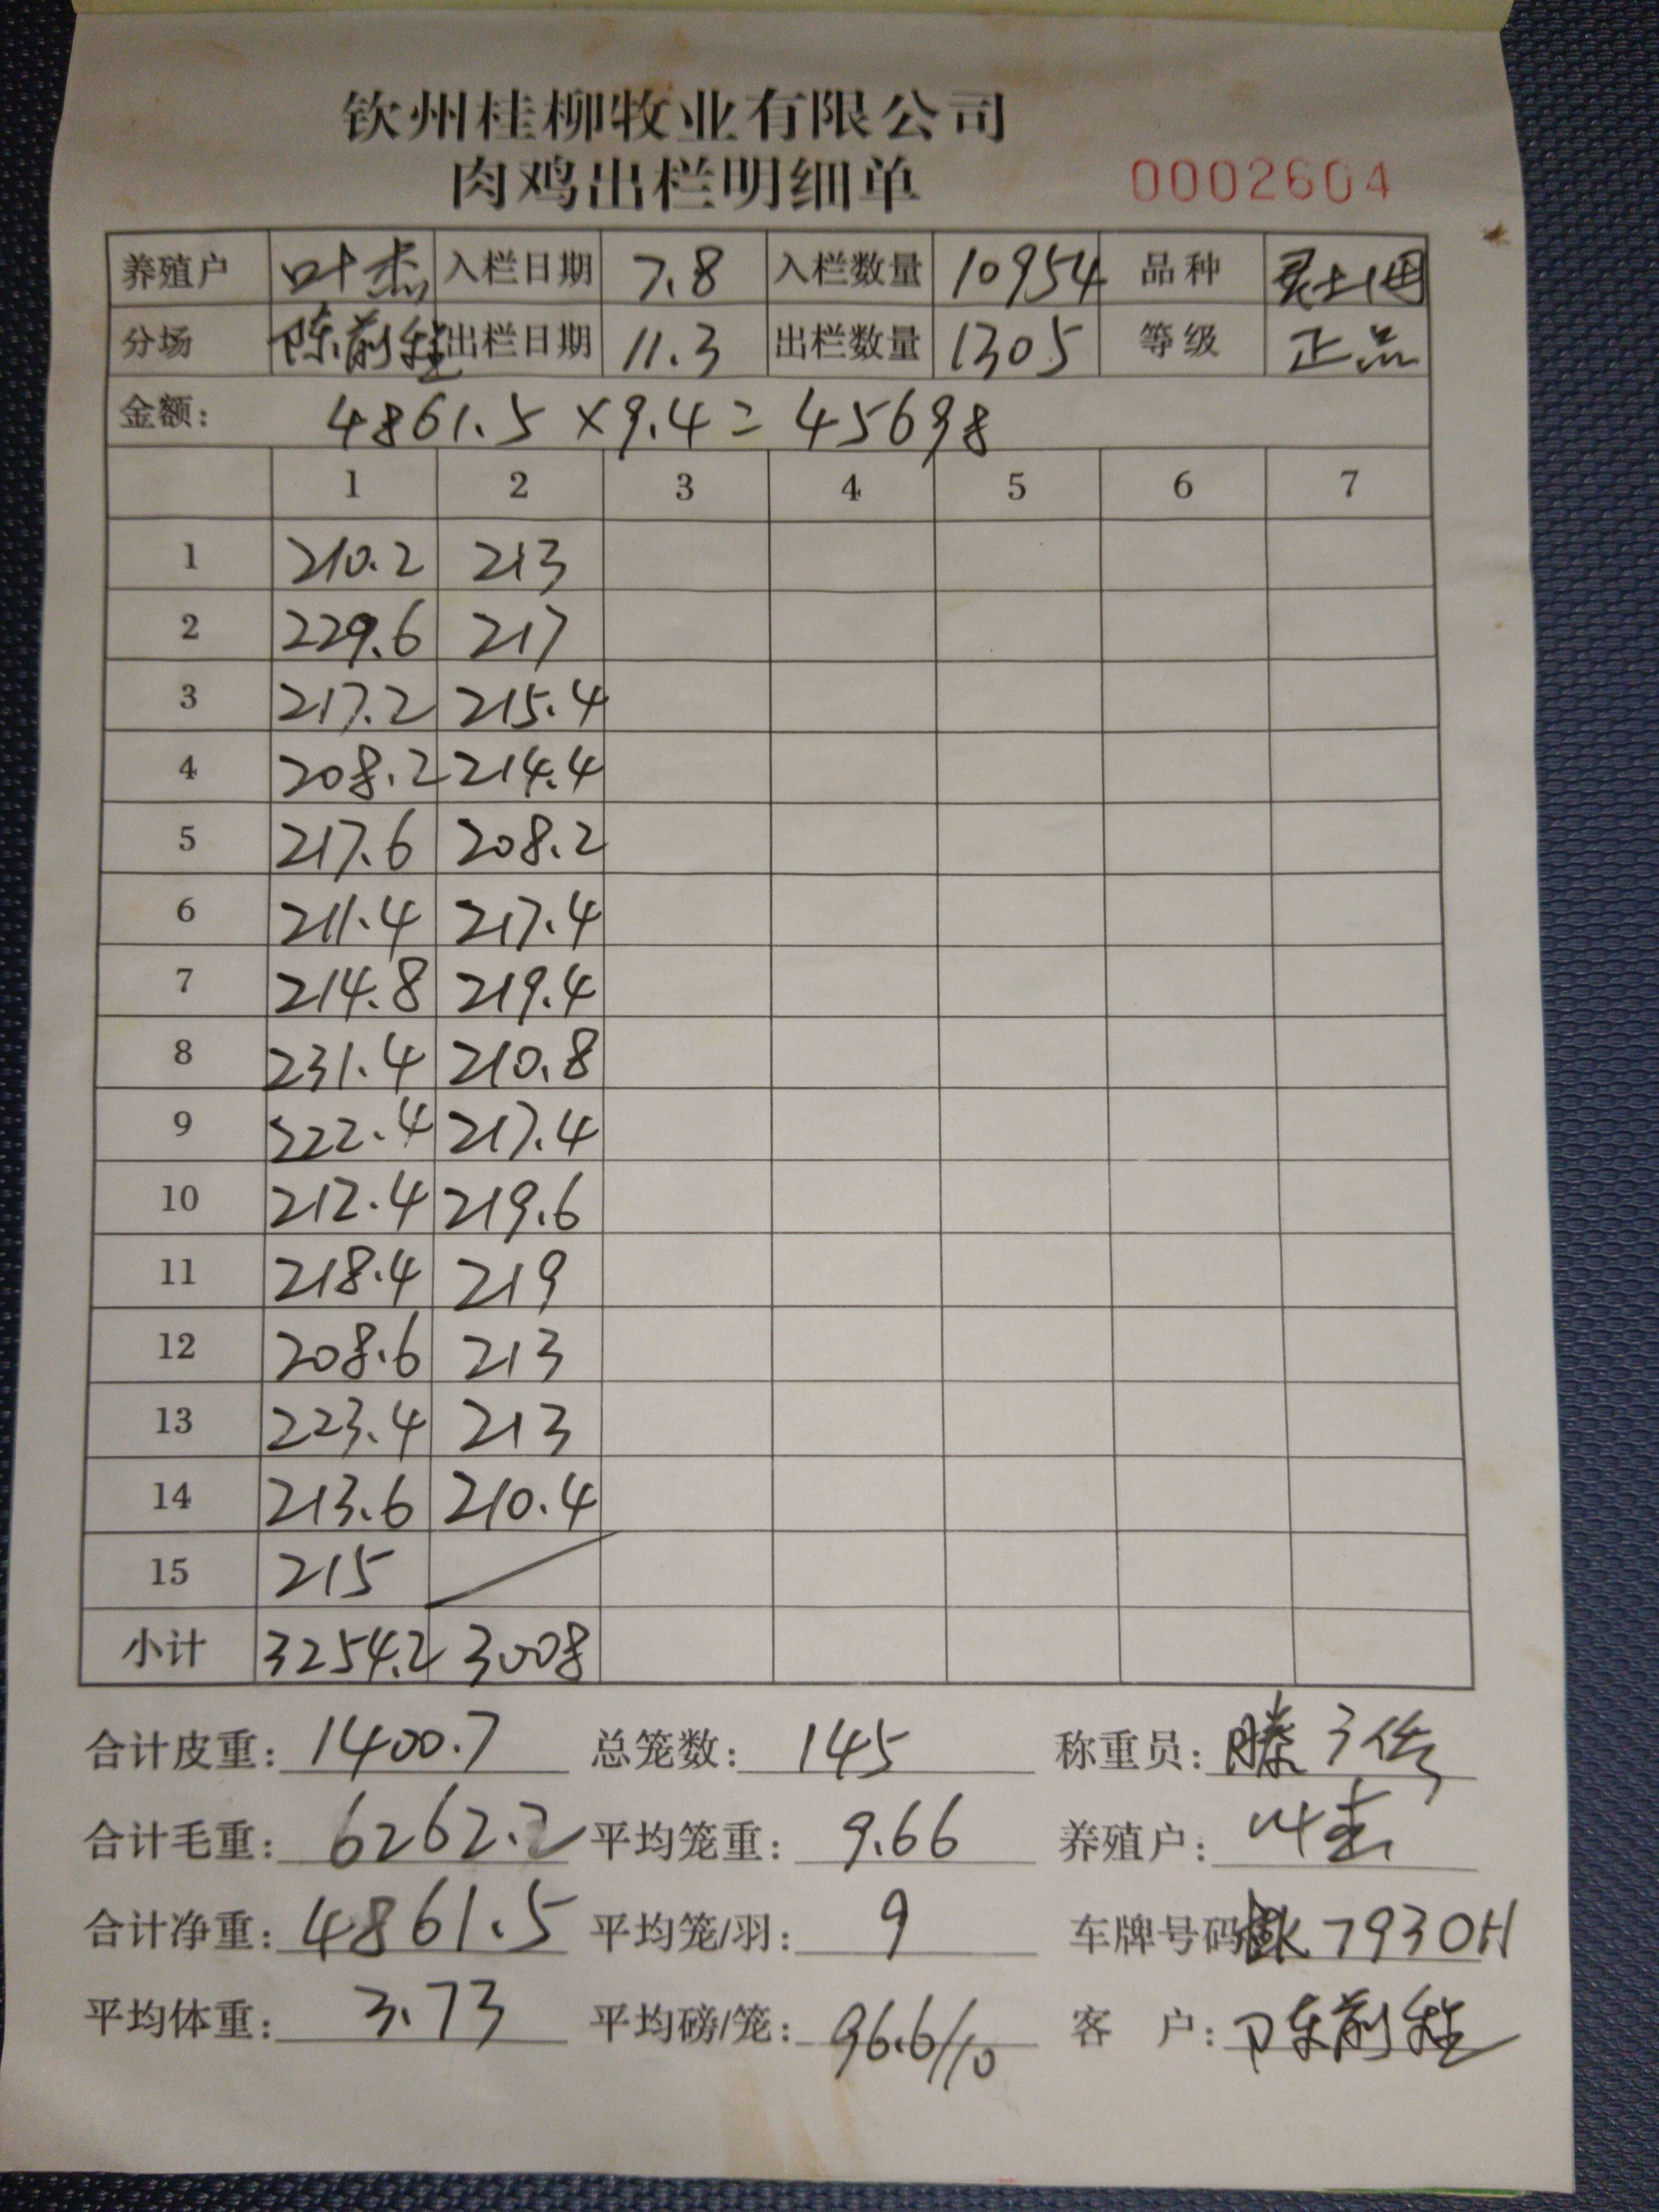 钦州桂柳牧业有限公司
肉鸡出栏明细单 0002604
养殖户 叶杰 入栏日期 7.8 入栏数量 10954 品种
分场 陈前程 出栏日期 11.3 出栏数量 1305 等级 正品
金额: 4861.5×9.4=45698
1 2 3 4 5 6 7
1 210.2 213
2 229.6 217
3 217.2 215.4
4 208.2 214.4
5 217.6 208.2
6 211.4 217.4
7 214.8 219.4
8 231.4 210.8
9 222.4 217.4
10 212.4 219.6
11 218.4 219
12 208.6 213
13 223.4 213
14 213.6 210.4
15 215
小计 3254.2 3008
合计皮重: 1400.7 总笼数: 145 称重员: 滕
合计毛重: 6262.2 平均笼重: 9.66 养殖户: 叶杰
合计净重: 4861.5 平均笼/羽: 9 车牌号码 7930H
平均体重: 3.73 平均磅/笼: 96.6/10 客 户: 陈前程